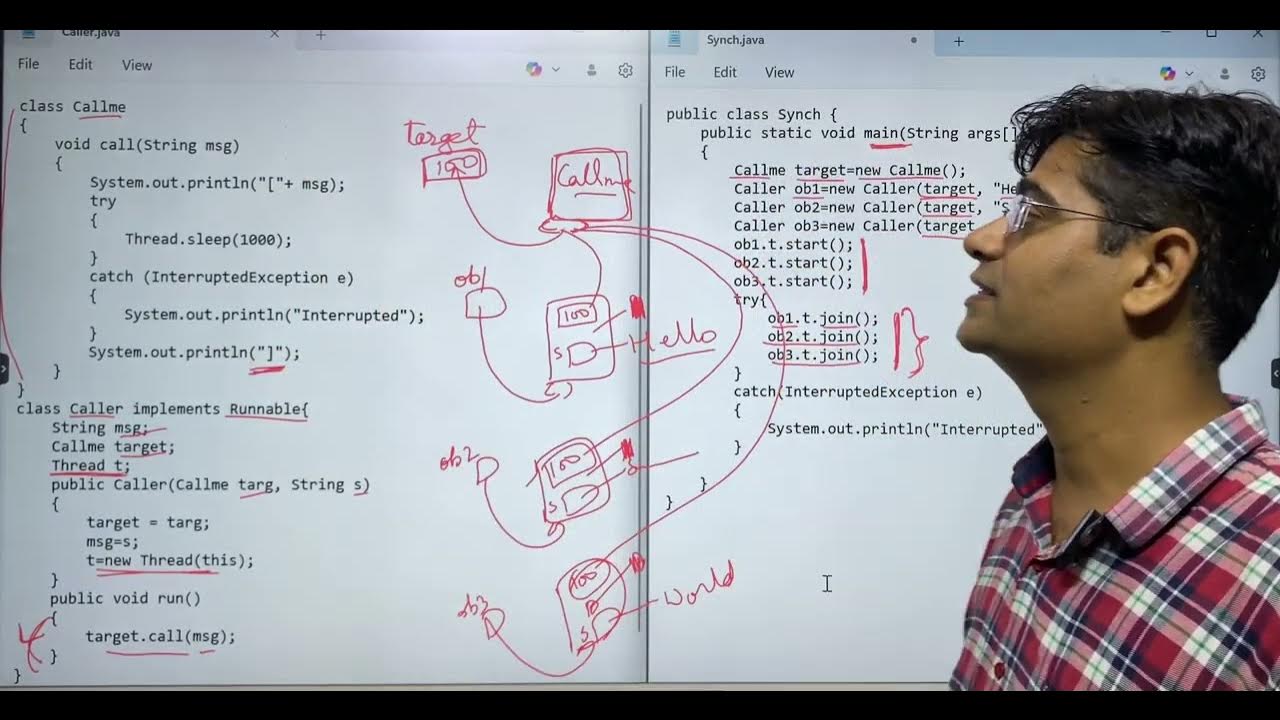 Caller.java
File Edit View
class Callme
{
void call(String msg)
{
System.out.println("["+ msg);
try
{
Thread.sleep(1000);
}
catch (InterruptedException e)
{
System.out.println("Interrupted");
}
System.out.println("]");
}
}
class Caller implements Runnable{
String msg;
Callme target;
Thread t;
public Caller(Callme targ, String s)
{
target = targ;
msg=s;
t=new Thread(this);
}
public void run()
{
target.call(msg);
}
}
target
100
Callme
ob1
100
s
Hello
ob2
100
s
s
ob3
100
s
World
Synch.java
File Edit View
public class Synch {
public static void main(String args[]
{
Callme target=new Callme();
Caller ob1=new Caller(target, "He
Caller ob2=new Caller(target, "S
Caller ob3=new Caller(target
ob1.t.start();
ob2.t.start();
ob3.t.start();
try{
ob1.t.join();
ob2.t.join();
ob3.t.join();
}
catch(InterruptedException e)
{
System.out.println("Interrupted"
}
}
}